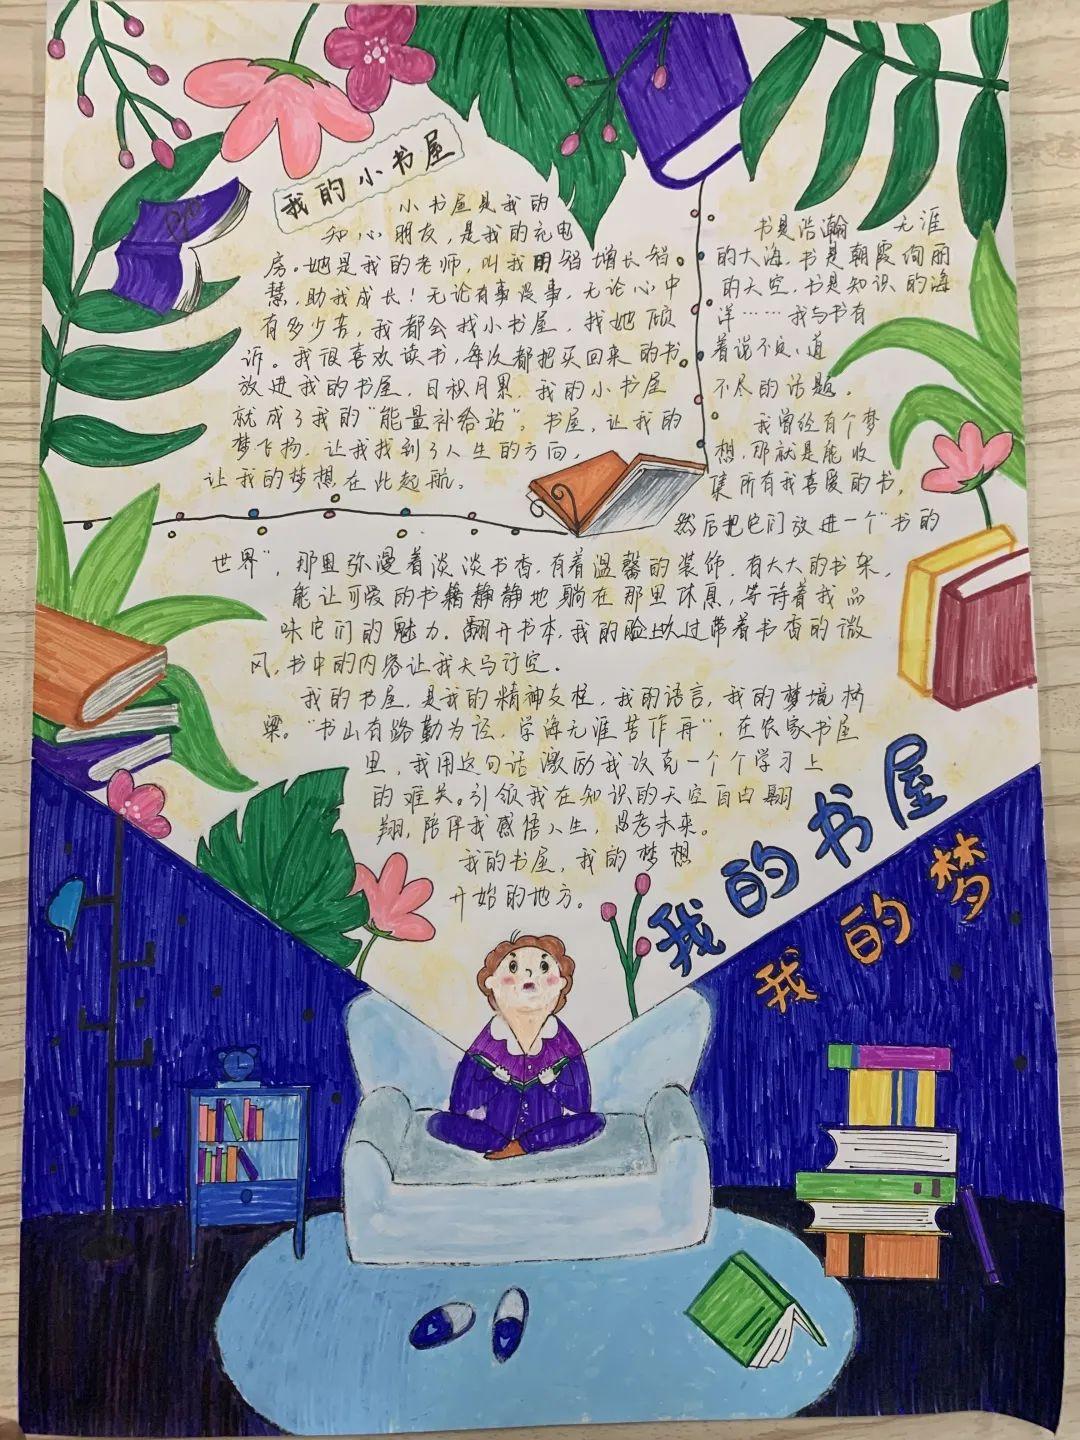 我的小书屋
小书屋是我的
知心朋友，是我的充电
房。她是我的老师，叫我用知增长智
慧，助我成长！无论有事没事，无论心中
有多少苦，我都会找小书屋，找她倾
诉。我很喜欢读书，每次都把买回来的书
放进我的书屋，日积月累，我的小书屋
就成了我的“能量补给站”。书屋，让我的
梦飞扬，让我找到了人生的方向，
让我的梦想在此起航。
书是浩瀚 无涯
的大海，书是朝霞绚丽
的天空，书是知识的海
洋……我与书有
着说不完、道
不尽的话题。
我曾经有个梦
想，那就是能收
集所有我喜爱的书，
然后把它们放进一个“书的
世界”，那里弥漫着淡淡书香，有着温馨的装饰，有大大的书架，
能让可爱的书籍静静地躺在那里休息，等待着我品
味它们的魅力。翻开书本，我的脸上吹过带着书香的微
风，书中的内容让我天马行空。
我的书屋，是我的精神支柱，我的语言，我的梦境桥
梁。“书山有路勤为径，学海无涯苦作舟”，在农家书屋
里，我用这句话激励我攻克一个个学习上
的难关。引领我在知识的天空自由翱
翔，陪伴我感悟人生，思考未来。
我的书屋，我的梦想
开始的地方。
我的书屋
我的梦